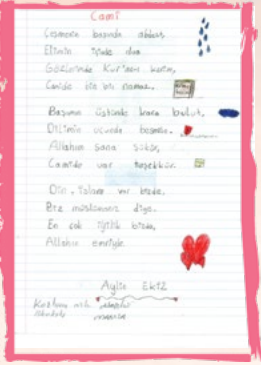 Cami
Çeşmenin başında abdest,
Elimin içinde dua
Gözlerimde Kur'anı Kerim,
Camide bin bir namaz.
Başımın üstünde kara bulut,
Dilimin ucunda besmele.
Allahım sana şükür,
Camide var teşekkür.
Din, islam var bizde,
Biz müslümanız diye.
En çok iyilik bizde,
Allahın emriyle.
Aylin Ekiz